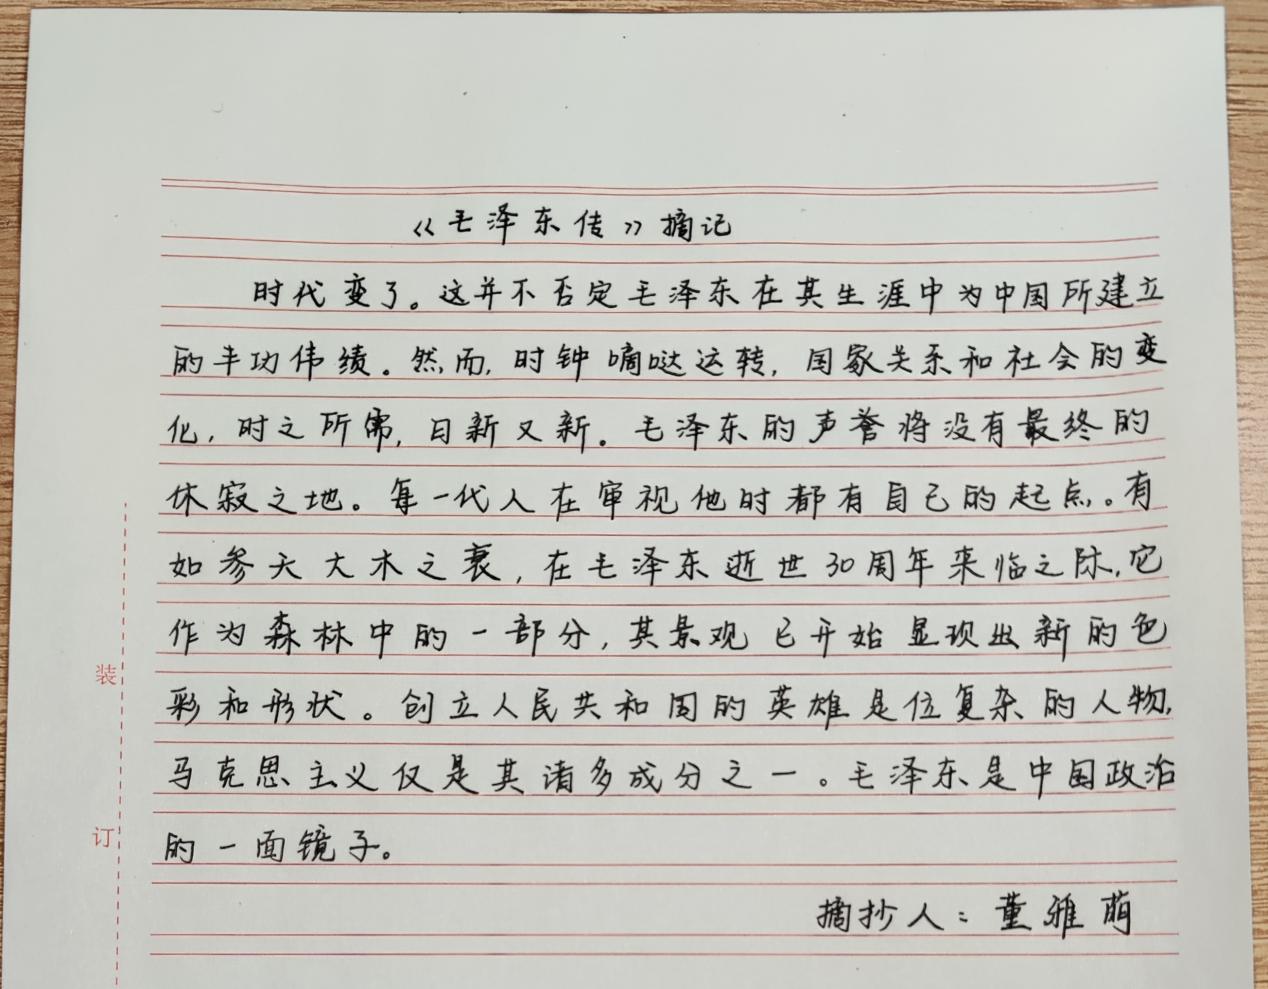 《毛泽东传》摘记
时代变了。这并不否定毛泽东在其生涯中为中国所建立
的丰功伟绩。然而,时钟嘀哒运转,国家关系和社会的变
化,时之所需,日新又新。毛泽东的声誉将没有最终的
休寂之地。每一代人在审视他时都有自己的起点。有
如参天大木之衰,在毛泽东逝世30周年来临之际,它
作为森林中的一部分,其景观已开始显现出新的色
彩和形状。创立人民共和国的英雄是位复杂的人物,
马克思主义仅是其诸多成分之一。毛泽东是中国政治
的一面镜子。
摘抄人:董雅萌
装
订